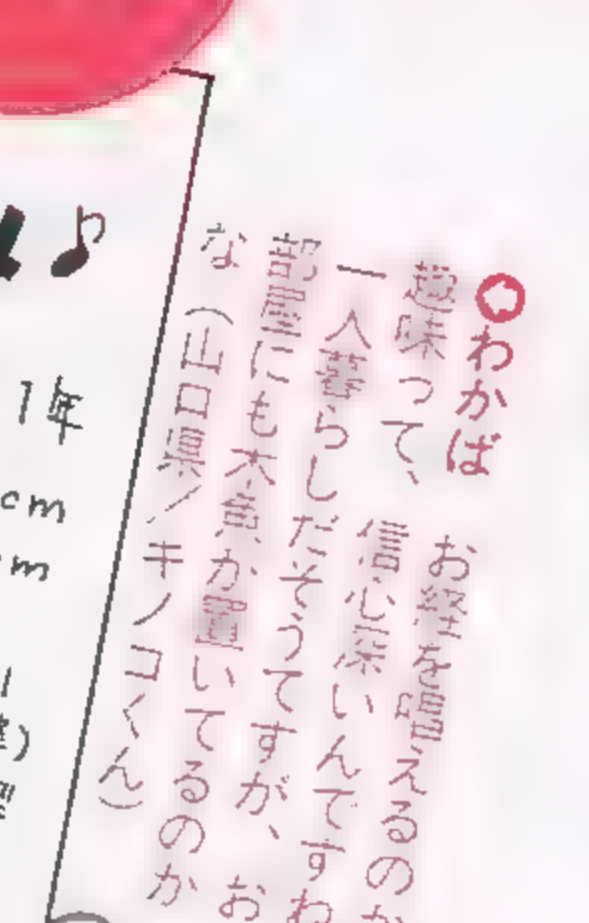 ○わかば　お経を唱えるのが
趣味って、信心深いんですね
一人暮らしだそうですが、お
部屋にも木魚が置いてるのか
な（山口県／キノコくん）
♪
1年
cm
m